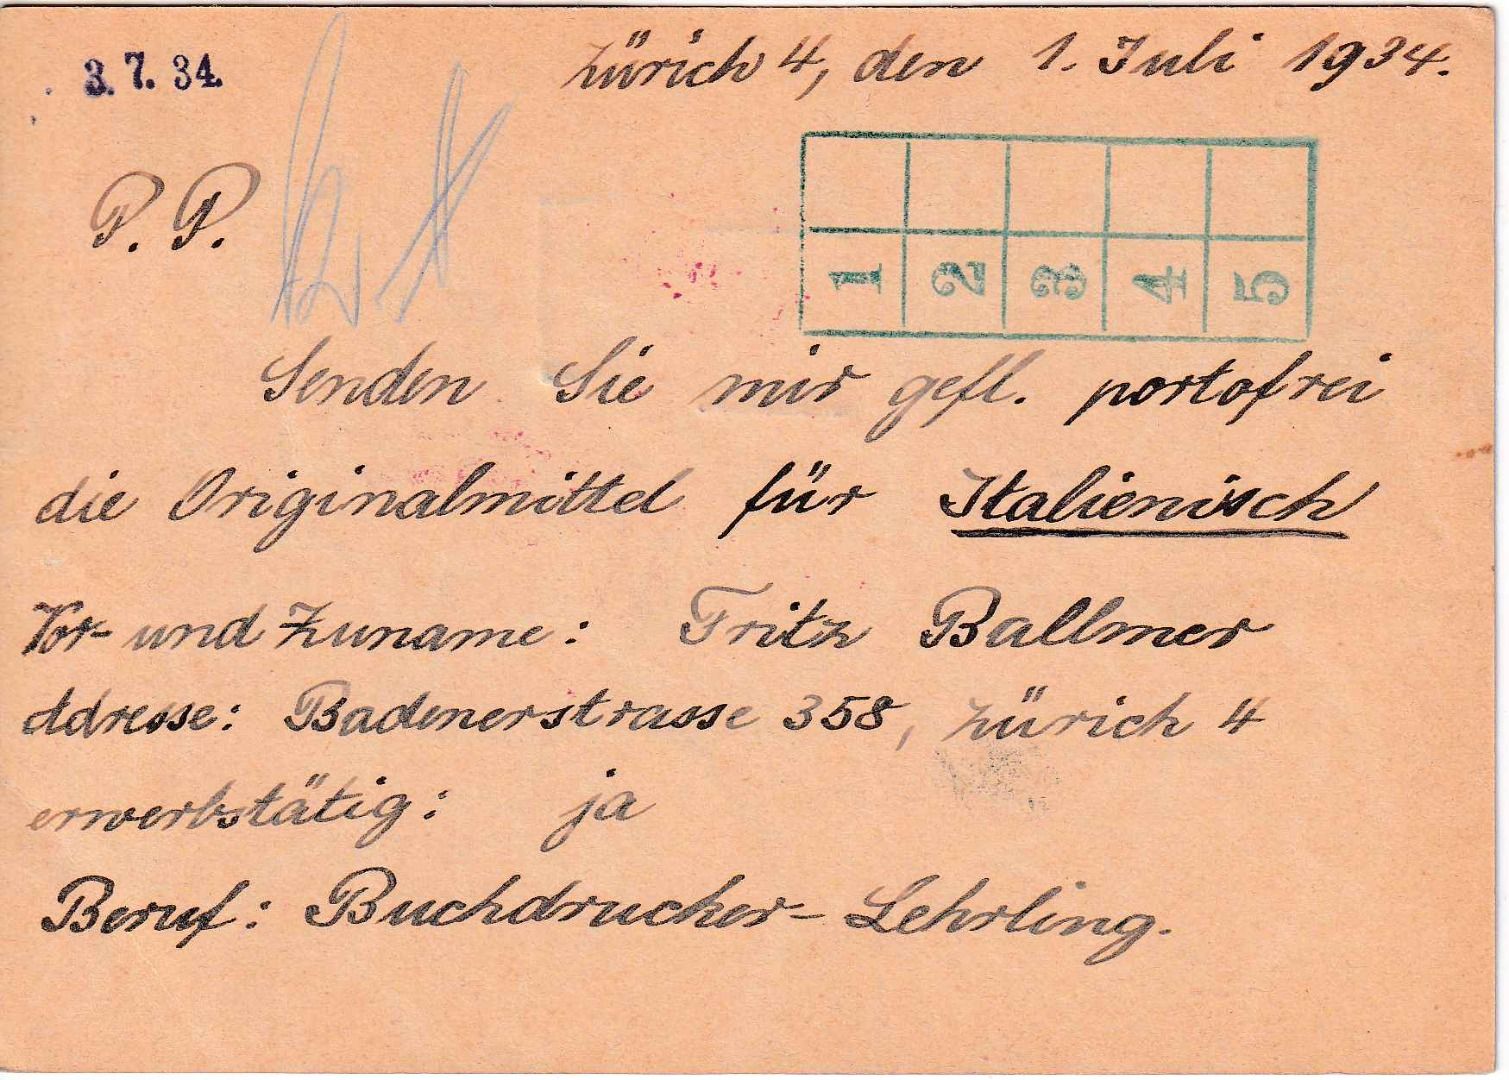 3. 7. 34.
Zürich 4, den 1. Juli 1934.
P. P.
1 2 3 4 5
Senden Sie mir gefl. portofrei
die Originalmittel für Italienisch
Vor- und Zuname: Fritz Ballmer
Adresse: Badenerstrasse 358, Zürich 4
erwerbstätig: ja
Beruf: Buchdrucker-Lehrling.